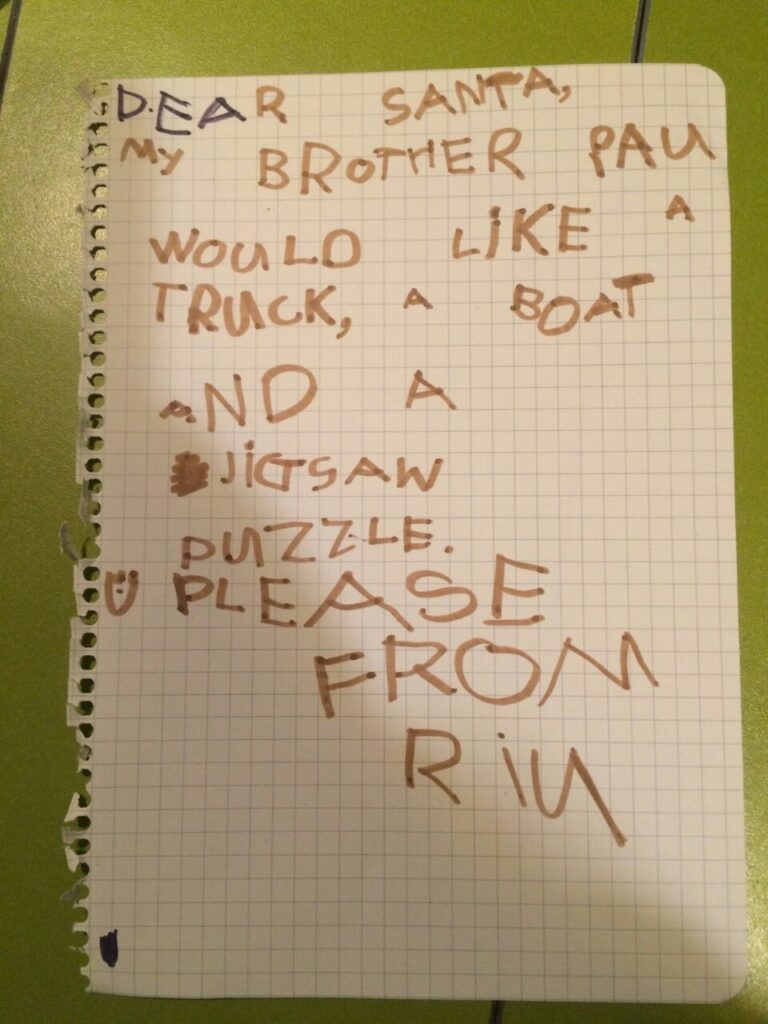 DEAR SANTA,
My BROTHER PAU
WOULD LiKE A
TRUCK, A BOAT
AND A
JiGSAW
PUZZLE.
PLEASE
FROM
RiU